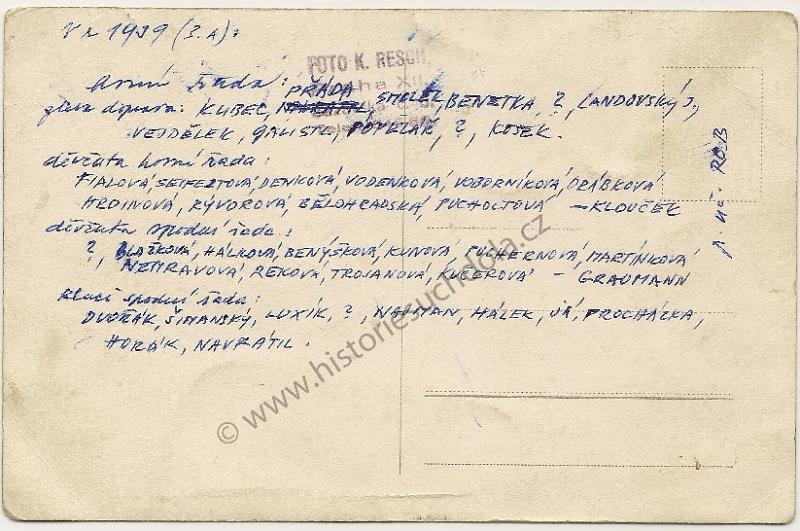 V r 1939 (3.A):
FOTO K. RESCH,
Praha XII
horní řada: PŘÁDA
zleva doprava: KUBEC, STREJC, BENETKA, ?, LANDOVSKÝ J.,
VEJDĚLEK, GALISTL, POVOLÁŘ, ?, KOSEK.
děvčata horní řada:
FIALOVÁ, SEIFERTOVÁ, DENKOVÁ, VODENKOVÁ, VOBORNÍKOVÁ, DRÁBKOVÁ
HRDINOVÁ, RÝVOROVÁ, BĚLOHRADSKÁ, PUCHOLTOVÁ – KLOUČEK
děvčata spodní řada:
?, BLAŽKOVÁ, HÁLKOVÁ, BENÝŠKOVÁ, KUNOVÁ, PUCHERNOVÁ, MARTÍNKOVÁ
NEHRAVOVÁ, REKOVÁ, TROJANOVÁ, KUČEROVÁ – GRAUMANN
kluci spodní řada:
DVOŘÁK, ŠIMANSKÝ, LUXÍK, ?, NAJMAN, HÁLEK, JÁ, PROCHÁZKA,
HORÁK, NAVRÁTIL.
© www.historiesuchdola.cz